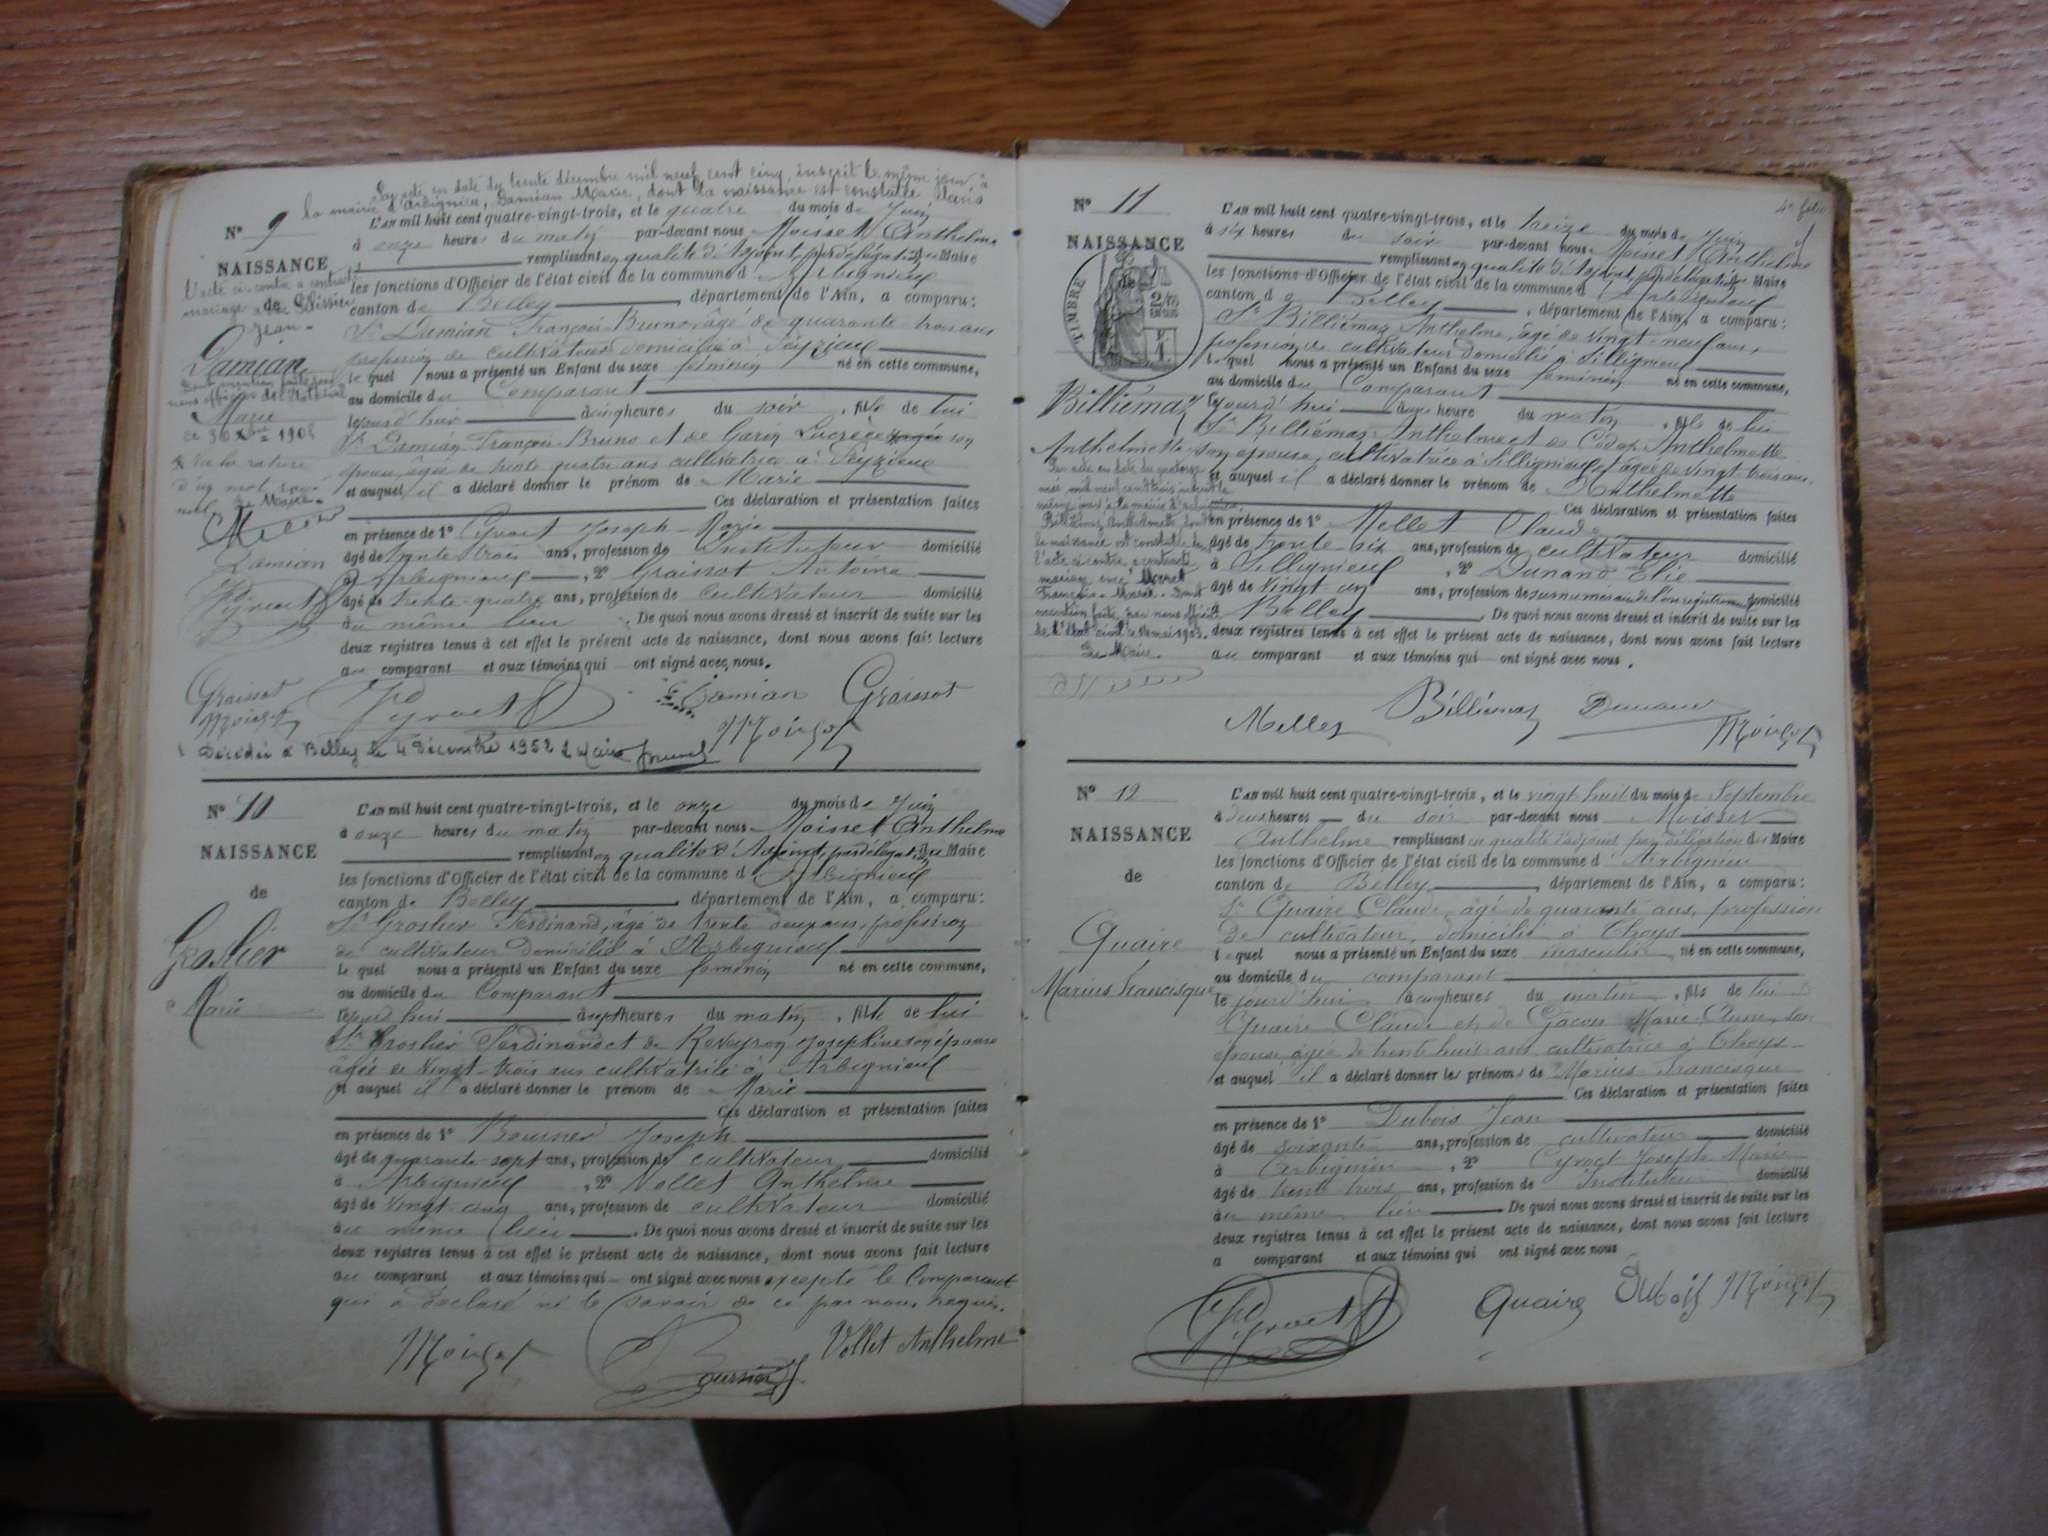 Par acte en date du trente décembre mil neuf cent cinq, inscrit le même jour, à
la mairie d'Arbignieu, Damian Marie, dont la naissance est constatée dans
N° 9
L'an mil huit cent quatre-vingt-trois, et le quatre du mois de Juin
à onze heures du matin par-devant nous Moisset Anthelme
NAISSANCE
remplissant en qualité d'Adjoint, par délégation du Maire
l'acte ci-contre a contracté
les fonctions d'Officier de l'état civil de la commune d'Arbignieu
mariage avec
de
Jean.
canton de Belley, département de l'Ain, a comparu:
Sr Damian François Bruno, âgé de quarante trois ans
Damian
profession de cultivateur domicilié à Peyzieu
lequel nous a présenté un Enfant du sexe féminin né en cette commune,
Marie
au domicile du Comparant
le jourd'hui à cinq heures du soir, fille de lui
Sr Damian François Bruno et de Garin Lucrèce son
épouse, âgée de trente quatre ans cultivatrice à Peyzieu
et auquel il a déclaré donner le prénom de Marie
Le Maire.
Ces déclaration et présentation faites
en présence de 1° Cyvoct Joseph-Marie
âgé de trente trois ans, profession de Instituteur domicilié
Damian
à Arbignieu, 2° Graissot Antoine
âgé de trente-quatre ans, profession de cultivateur domicilié
du même lieu. De quoi nous avons dressé et inscrit de suite sur les
deux registres tenus à cet effet le présent acte de naissance, dont nous avons fait lecture
au comparant et aux témoins qui ont signé avec nous.
Graissot
Damian Graissot
Décédée à Belley le 4 Décembre 1952 Le Maire
N° 10
L'an mil huit cent quatre-vingt-trois, et le onze du mois de Juin
à onze heures du matin par-devant nous Moisset Anthelme
NAISSANCE
remplissant en qualité d'Adjoint, par délégation du Maire
les fonctions d'Officier de l'état civil de la commune d'Arbignieu
de
canton de Belley, département de l'Ain, a comparu:
Sr Groslier Ferdinand, âgé de trente deux ans, profession
Groslier
de cultivateur domicilié à Arbignieu
lequel nous a présenté un Enfant du sexe féminin né en cette commune,
Marie
au domicile du Comparant
le jourd'hui à sept heures du matin, fille de lui
Sr Groslier Ferdinand et de Reveyron Josephine son épouse
âgée de vingt-trois ans cultivatrice à Arbignieu
et auquel il a déclaré donner le prénom de Marie
Ces déclaration et présentation faites
en présence de 1° Boursier Joseph
âgé de quarante-sept ans, profession de cultivateur domicilié
à Arbignieu, 2° Vollet Anthelme
âgé de vingt-cinq ans, profession de cultivateur domicilié
au même lieu. De quoi nous avons dressé et inscrit de suite sur les
deux registres tenus à cet effet le présent acte de naissance, dont nous avons fait lecture
au comparant et aux témoins qui ont signé avec nous excepté le Comparant
qui a déclaré ne le savoir de ce par nous requis.
Boursier Vollet Anthelme
4e folio
N° 11
L'an mil huit cent quatre-vingt-trois, et le treize du mois de Juin
à six heures du soir par-devant nous Moisset Anthelme
NAISSANCE
remplissant en qualité d'Adjoint, par délégation du Maire
les fonctions d'Officier de l'état civil de la commune d'Arbignieu
de
TIMBRE
canton de Belley, département de l'Ain, a comparu:
Sr Billiémaz Anthelme, âgé de vingt-neuf ans,
profession de cultivateur domicilié à Sillignieu
lequel nous a présenté un Enfant du sexe féminin né en cette commune,
Billiémaz
au domicile du Comparant
le jourd'hui à une heure du matin, fille de lui
Sr Billiémaz Anthelme et de Anthelmette
Anthelmette
son épouse, cultivatrice à Sillignieu, âgée de vingt trois ans,
et auquel il a déclaré donner le prénom de Anthelmette
Ces déclaration et présentation faites
Billiémaz Anthelmette, dont
la naissance est constatée dans
l'acte ci-contre, a contracté
mariage avec
mention faite par nous officier
de l'état civil
Le Maire.
en présence de 1° Mellet Claude
âgé de trente-six ans, profession de cultivateur domicilié
à Sillignieu, 2° Dunand Elie
âgé de vingt un ans, profession de surnuméraire de l'enregistrement domicilié
à Belley. De quoi nous avons dressé et inscrit de suite sur les
deux registres tenus à cet effet le présent acte de naissance, dont nous avons fait lecture
au comparant et aux témoins qui ont signé avec nous.
Mellet Billiémaz Dunand
N° 12
L'an mil huit cent quatre-vingt-trois, et le vingt huit du mois de Septembre
à deux heures du soir par-devant nous Moisset
NAISSANCE
Anthelme remplissant en qualité d'adjoint par délégation du Maire
les fonctions d'Officier de l'état civil de la commune d'Arbignieu
de
canton de Belley, département de l'Ain, a comparu:
Sr Quaire Claude, âgé de quarante ans, profession
Quaire
de cultivateur, domicilié à Thoys
lequel nous a présenté un Enfant du sexe masculin né en cette commune,
Marius Francisque
au domicile du comparant
le jourd'hui à cinq heures du matin, fils de lui
Quaire Claude et de Gacon Marie-Anne, son
épouse, âgée de trente huit ans cultivatrice à Thoys
et auquel il a déclaré donner les prénoms de Marius Francisque
Ces déclaration et présentation faites
en présence de 1° Dubois Jean
âgé de soixante ans, profession de cultivateur domicilié
à Arbignieu, 2° Cyvoct Joseph Marie
âgé de trente trois ans, profession de Instituteur domicilié
au même lieu. De quoi nous avons dressé et inscrit de suite sur les
deux registres tenus à cet effet le présent acte de naissance, dont nous avons fait lecture
a comparant et aux témoins qui ont signé avec nous
Quaire Dubois